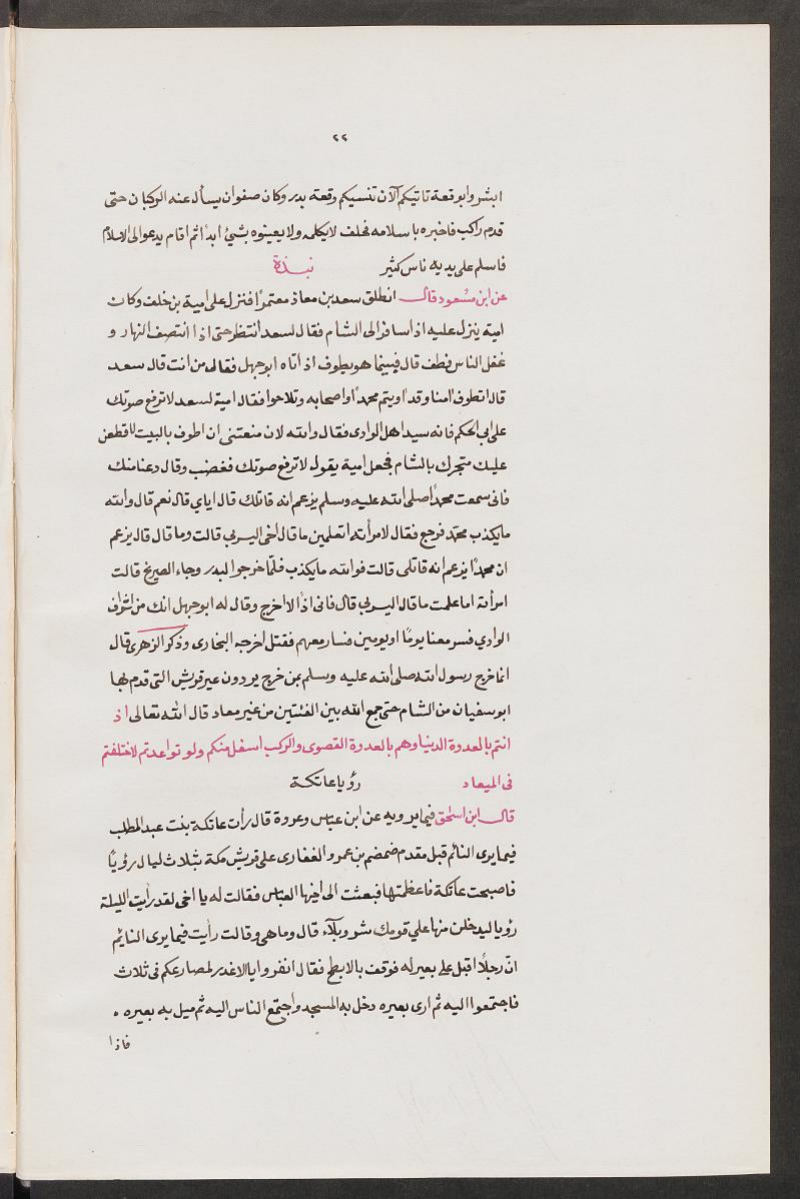 ٢٢
ابشروا بوقعة تاتيكم الآن تنسيكم وقعة بدر وكان صفوان يسأل عنه الركبان حتى
قدم راكب فاخبره باسلامه فحلف لا يكلمه ولا يعينوه بشئ ابدًا ثم اقام يدعو الى الاسلام
فاسلم على يديه ناس كثير نبذة
عن ابن مسعود قال انطلق سعد بن معاذ معتمرًا فنزل على امية بن خلف وكان
امية ينزل عليه اذ اسافر الى الشام فقال لسعد انتظر حتى اذا انتصف النهار و
غفل الناس فطف قال فبينما هو يطوف اذ اتاه ابو جهل فقال من انت قال سعد
قال اتطوف امنا وقد اويتم محمدًا واصحابه وتلاحوا فقال امية لسعد لا ترفع صوتك
على ابي الحكم فانه سيد اهل الوادى فقال والله لان منعتنى ان اطوف بالبيت لاقطعن
عليك متجرك بالشام فجعل امية يقول لا ترفع صوتك فغضب وقال دعنا منك
فانى سمعت محمدًا صلى الله عليه وسلم يزعم انه قاتلك قال اياي قال نعم قال والله
ما يكذب محمد فرجع فقال لامرأته اتعلمين ما قال اخى اليثربي قالت وما قال قال يزعم
ان محمدًا يزعم انه قاتلى قالت فوالله ما يكذب فلما خرجوا لبدر وجاء الصريخ قالت
امرأته اما علمت ما قال اليثربي قال فانى اذًا لا اخرج وقال له ابو جهل انك من اشراف
الوادي فسر معنا يومًا او يومين فسار معهم فقتل اخرجه البخارى وذكر الزهرى قال
انما خرج رسول الله صلى الله عليه وسلم بمن خرج يردون عير قريش التى قدم بها
ابو سفيان من الشام حتى جمع الله بين الفئتين من غير معاد قال الله تعالى اذ
انتم بالعدوة الدنيا وهم بالعدوة القصوى والركب اسفل منكم ولو تواعدتم لاختلفتم
فى الميعاد رؤيا عاتكة
قال ابن اسحق فيما يرويه عن ابن عباس وعروة قال رأت عاتكة بنت عبد المطلب
فيما يرى النائم قبل مقدم ضمضم بن عمرو الغفارى على قريش مكة بثلاث ليال رؤيًا
فاصبحت عاتكة فاعظمتها فبعثت الى اخيها العباس فقالت له يا اخى لقد رأيت الليلة
رؤيا ليدخلن منها علي قومك شر وبلآء قال وما هى وقالت رأيت فيما يرى النايم
انّ رجلًا اقبل على بعير له فوقف بالابطح فقال انفروا يا الاغدر لمصارعكم فى ثلاث
فاجتمعوا اليه ثم ارى بعيره دخل به المسجد واجتمع الناس اليه ثم ميل به بعيره
فاذا